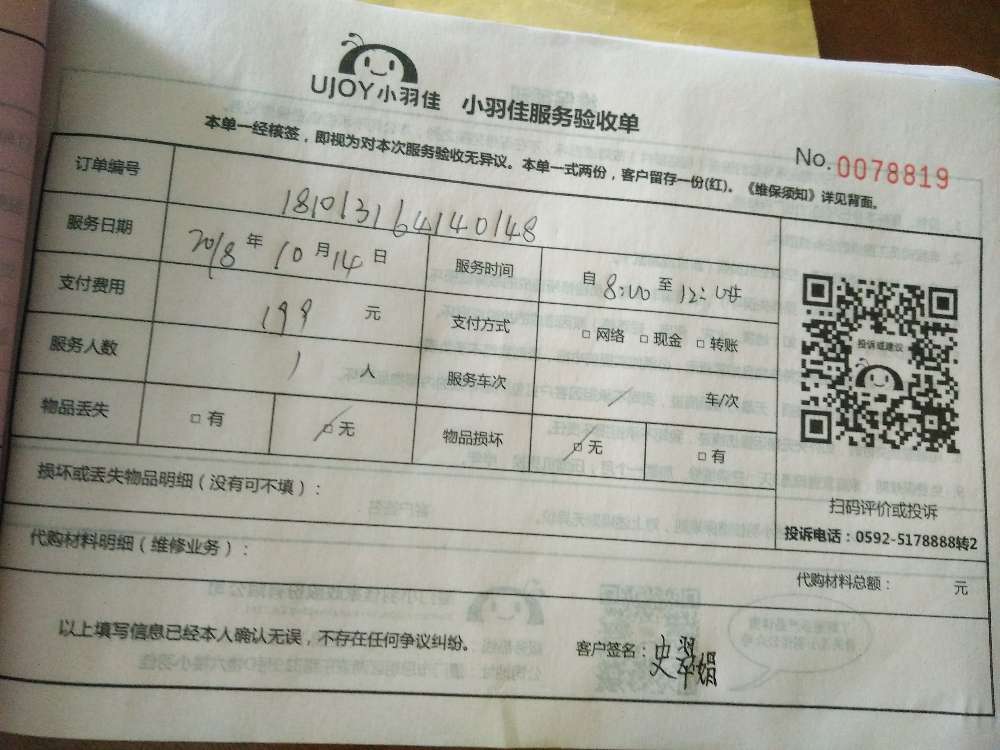 UJOY小羽佳 小羽佳服务验收单
No. 0078819
本单一经核签，即视为对本次服务验收无异议。本单一式两份，客户留存一份(红)。《维保须知》详见背面。
订单编号 181013164140148
服务日期 2018 年 10 月 14 日 服务时间 自 8:00 至 12:00
支付费用 199 元 支付方式 □ 网络 □ 现金 □ 转账
服务人数 1 人 服务车次 / 车/次
物品丢失 □ 有 □ 无 物品损坏 □ 无 □ 有
投诉或建议
扫码评价或投诉
投诉电话：0592-5178888转2
损坏或丢失物品明细（没有可不填）：
代购材料明细（维修业务）：
代购材料总额： 元
以上填写信息已经本人确认无误，不存在任何争议纠纷。 客户签名：史翠娟